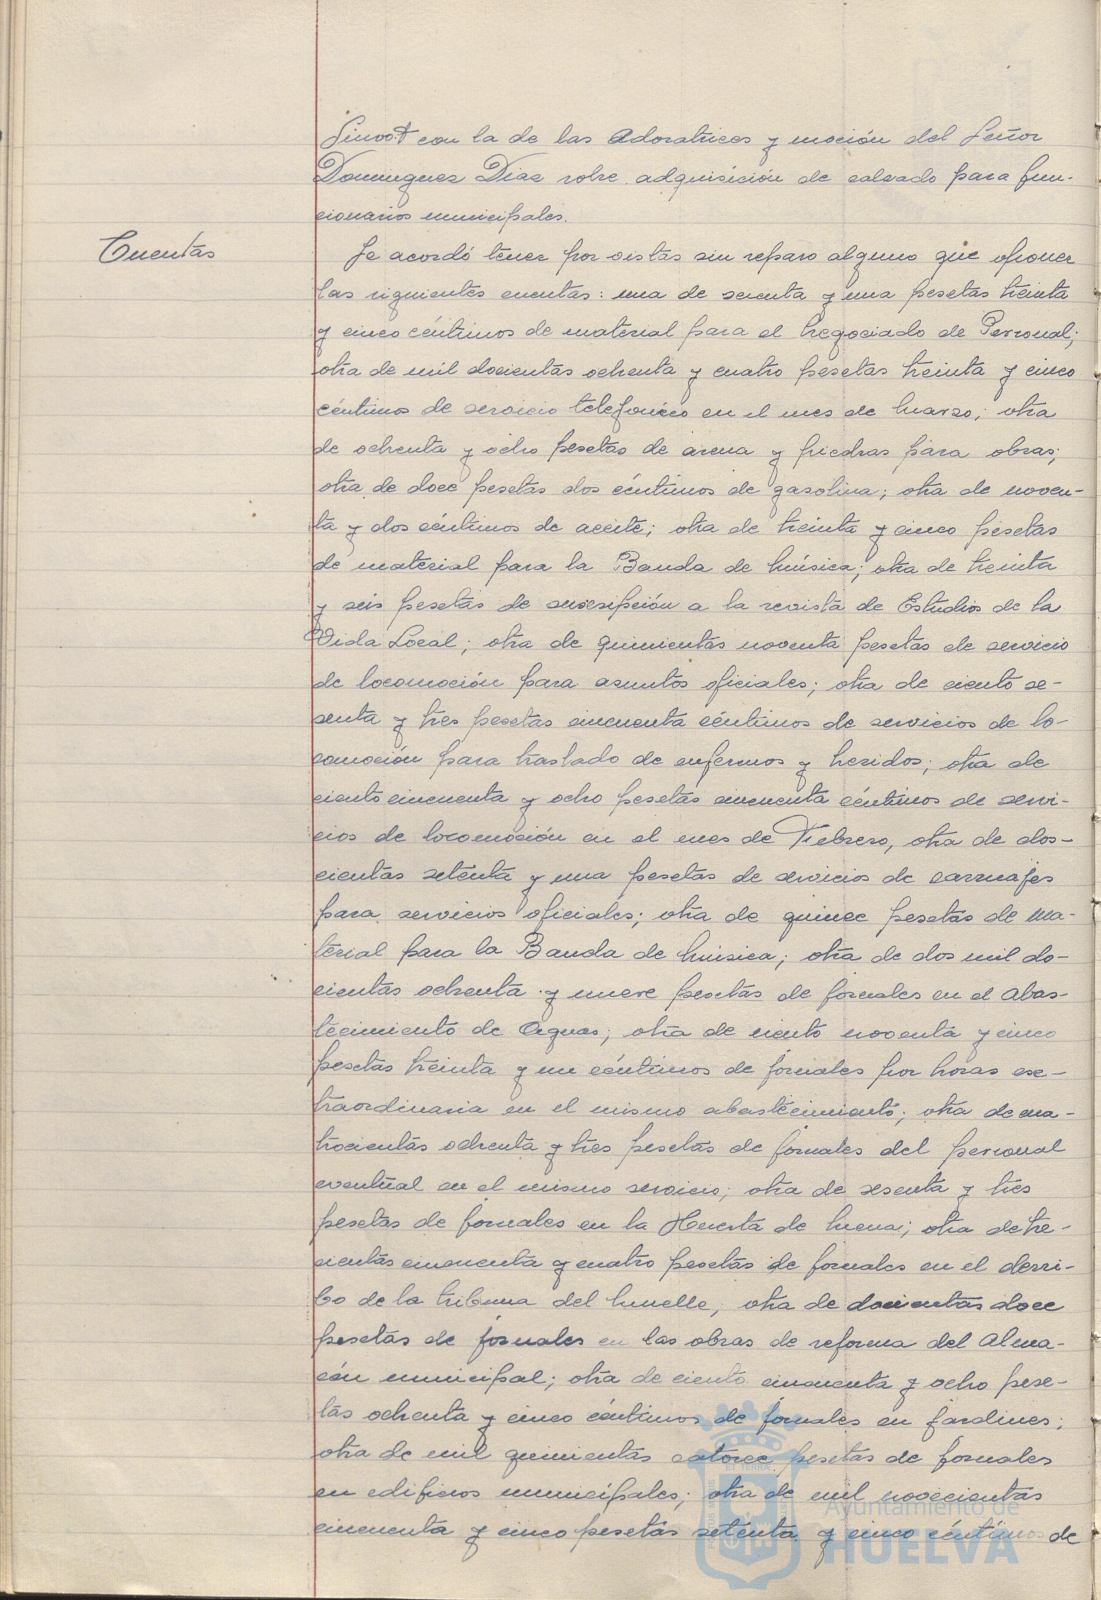 con la de las Adoratrices y moción del Señor
Dominguez Diaz sobre adquisición de calzado para fun-
cionarios municipales.
Cuentas
Se acordó tener por vistas sin reparo alguno que oponer
las siguientes cuentas: una de sesenta y una pesetas treinta
y cinco céntimos de material para el Negociado de Personal;
otra de mil docientas ochenta y cuatro pesetas treinta y cinco
céntimos de servicio telefonico en el mes de Marzo; otra
de ochenta y ocho pesetas de arena y piedras para obras;
otra de doce pesetas dos céntimos de gasolina; otra de noven-
ta y dos céntimos de aceite; otra de treinta y cinco pesetas
de material para la Banda de Música; otra de treinta
y seis pesetas de suscripción a la revista de Estudios de la
Vida Local; otra de quinientas noventa pesetas de servicio
de locomoción para asuntos oficiales; otra de ciento se-
senta y tres pesetas cincuenta céntimos de servicios de lo-
comoción para traslado de enfermos y heridos; otra de
ciento cincuenta y ocho pesetas cincuenta céntimos de servi-
cios de locomoción en el mes de Febrero, otra de dos-
cientas setenta y una pesetas de servicios de carruajes
para servicios oficiales; otra de quince pesetas de ma-
terial para la Banda de Música; otra de dos mil do-
cientas ochenta y nueve pesetas de jornales en el abas-
tecimiento de Aguas; otra de ciento noventa y cinco
pesetas treinta y un céntimos de jornales por horas ex-
traordinaria en el mismo abastecimiento; otra de cua-
trocientas ochenta y tres pesetas de jornales del personal
eventual en el mismo servicio; otra de sesenta y tres
pesetas de jornales en la Huerta de Mena; otra de tre-
cientas cincuenta y cuatro pesetas de jornales en el derri-
bo de la tribuna del Muelle; otra de docientas doce
pesetas de jornales en las obras de reforma del Alma-
cén municipal; otra de ciento cincuenta y ocho pese-
tas ochenta y cinco céntimos de jornales en jardines;
otra de mil quinientas catorce pesetas de jornales
en edificios municipales; otra de mil novecientas
cincuenta y cinco pesetas setenta y cinco céntimos de
Ayuntamiento de
HUELVA